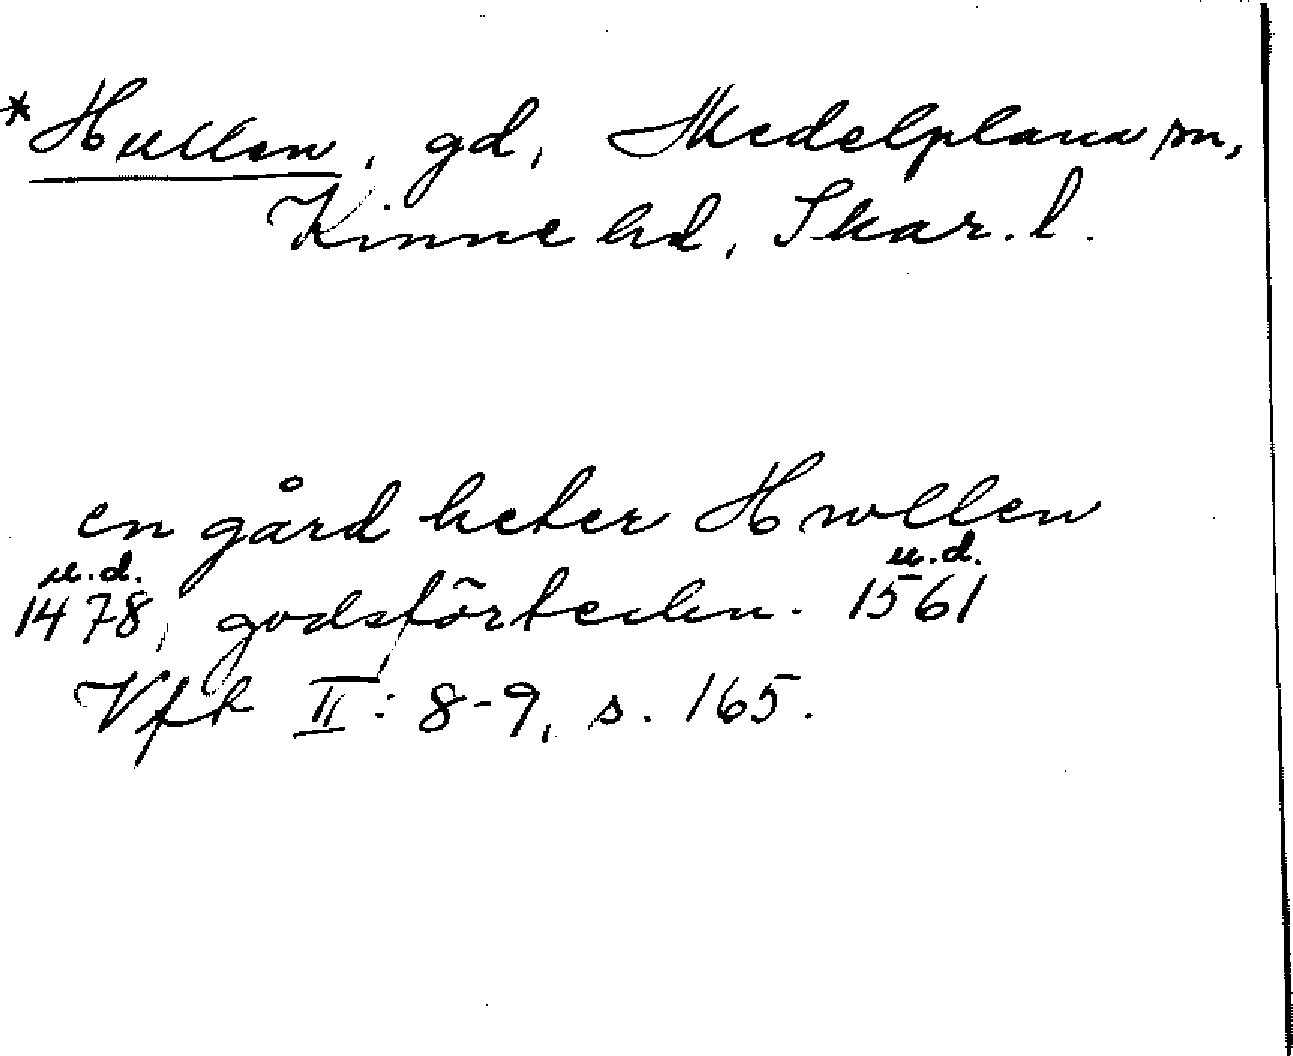 *Hullen, gd, Medelplana sn,
Kinne hd, Skar. l.
en gård heter Hwllen
u.d. 1478, godsförteckn. u.d. 1561
Vfk II: 8-9, s. 165.